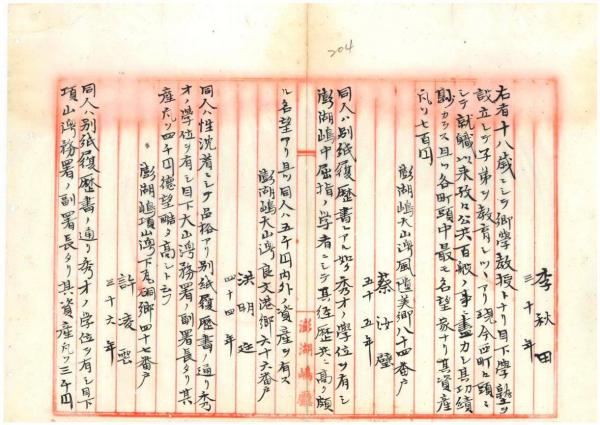 204
李秋田
三十年
右者十八歳ニシテ鄉學教授トナリ目下學塾ヲ
設立シテ子弟ヲ教育シツヽアリ現今四町ノ頭ニ
シテ就職以來孜々公共百般ノ事ニ盡力シ其功績
尠カラス且ツ各町頭中最モ名望家ナリ其資產
凡ソ七百円
澎湖嶋大山灣風匱美鄉八十四番戶
蔡汝璧
五十五年
同人ハ別紙履歷書ニアル如ク秀才ノ學位ヲ有シ
澎湖嶋中屈指ノ學者ニシテ其徃歷共ニ高ク頗
ル名望アリ且ツ同人ハ五千円內外ノ資產ヲ有ス
澎湖嶋大山灣良文港鄉六十六番戶
洪明
四十四年
同人ハ性沈着ニシテ品格アリ別紙履歷書ノ通リ秀
才ノ學位ヲ有シ目下大山灣務署ノ副署長タリ其
產凡ソ四千円德望略々高シト云フ
澎湖嶋項山灣下瓦硐鄉四十七番戶
許凌雲
三十六年
同人ハ別紙履歷書ノ通リ秀才ノ學位ヲ有シ目下
項山灣務署ノ副署長タリ其資產凡ソ三千円
澎湖嶋廳